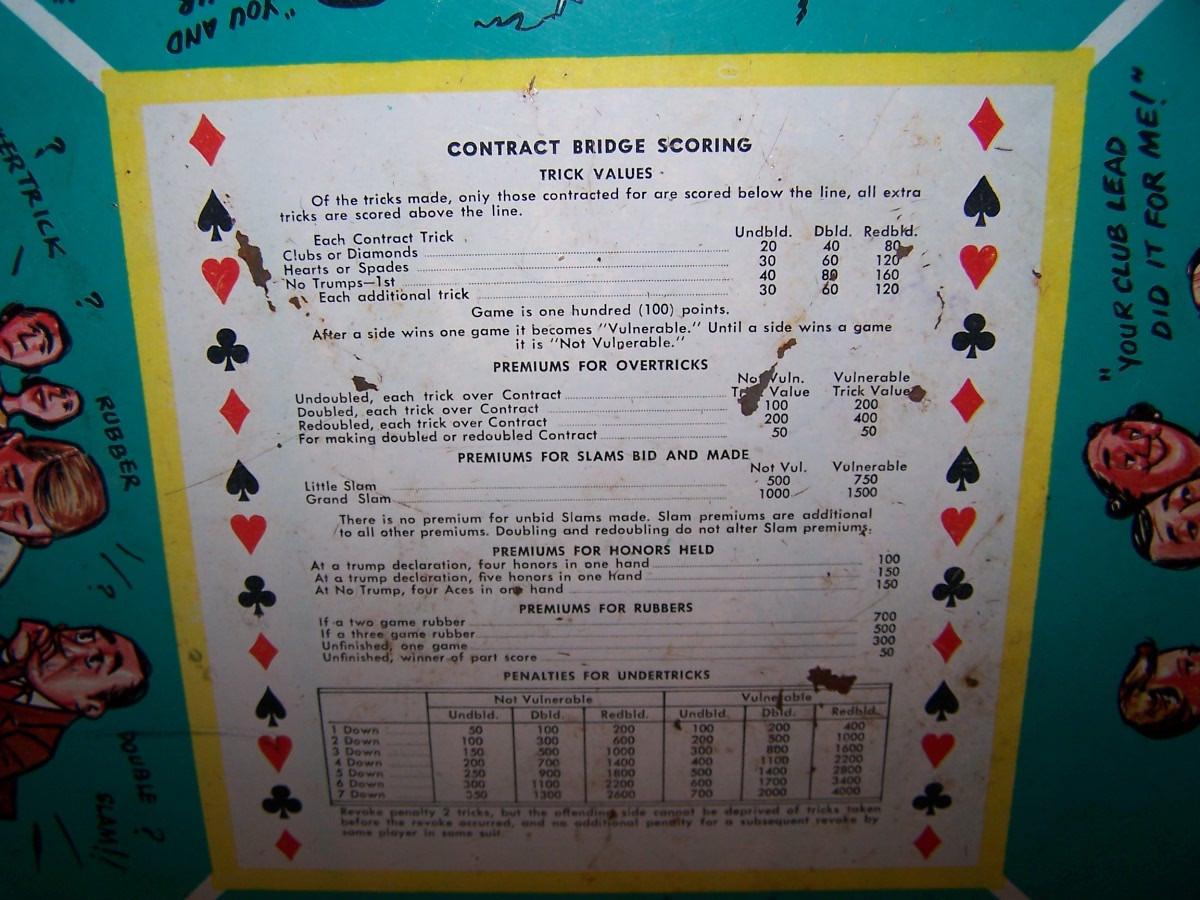 "YOU AND
UR
?
ERTRICK
?
RUBBER
!/?
DOUBLE ?
SLAM!!
"YOUR CLUB LEAD
DID IT FOR ME!"
CONTRACT BRIDGE SCORING
TRICK VALUES
Of the tricks made, only those contracted for are scored below the line, all extra
tricks are scored above the line.
Each Contract Trick Undbld. Dbld. Redbld.
Clubs or Diamonds 20 40 80
Hearts or Spades 30 60 120
No Trumps—1st 40 80 160
Each additional trick 30 60 120
Game is one hundred (100) points.
After a side wins one game it becomes "Vulnerable." Until a side wins a game
it is "Not Vulnerable."
PREMIUMS FOR OVERTRICKS
Not Vuln. Vulnerable
Undoubled, each trick over Contract Trick Value Trick Value
Doubled, each trick over Contract 100 200
Redoubled, each trick over Contract 200 400
For making doubled or redoubled Contract 50 50
PREMIUMS FOR SLAMS BID AND MADE
Not Vul. Vulnerable
Little Slam 500 750
Grand Slam 1000 1500
There is no premium for unbid Slams made. Slam premiums are additional
to all other premiums. Doubling and redoubling do not alter Slam premiums.
PREMIUMS FOR HONORS HELD
At a trump declaration, four honors in one hand 100
At a trump declaration, five honors in one hand 150
At No Trump, four Aces in one hand 150
PREMIUMS FOR RUBBERS
If a two game rubber 700
If a three game rubber 500
Unfinished, one game 300
Unfinished, winner of part score 50
PENALTIES FOR UNDERTRICKS
Not Vulnerable Vulnerable
Undbld. Dbld. Redbld. Undbld. Dbld. Redbld.
1 Down 50 100 200 100 200 400
2 Down 100 300 600 200 500 1000
3 Down 150 500 1000 300 800 1600
4 Down 200 700 1400 400 1100 2200
5 Down 250 900 1800 500 1400 2800
6 Down 300 1100 2200 600 1700 3400
7 Down 350 1300 2600 700 2000 4000
Revoke penalty 2 tricks, but the offending side cannot be deprived of tricks taken
before the revoke occurred, and no additional penalty for a subsequent revoke by
same player in same suit.